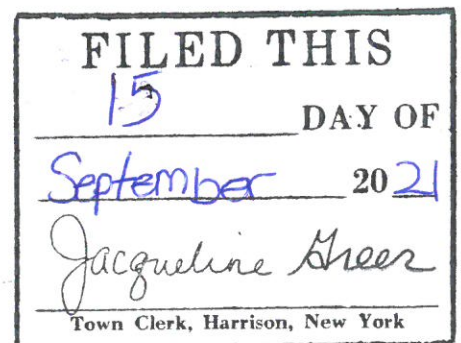 FILED THIS
15 DAY OF
September 2021
Jacqueline Greer
Town Clerk, Harrison, New York